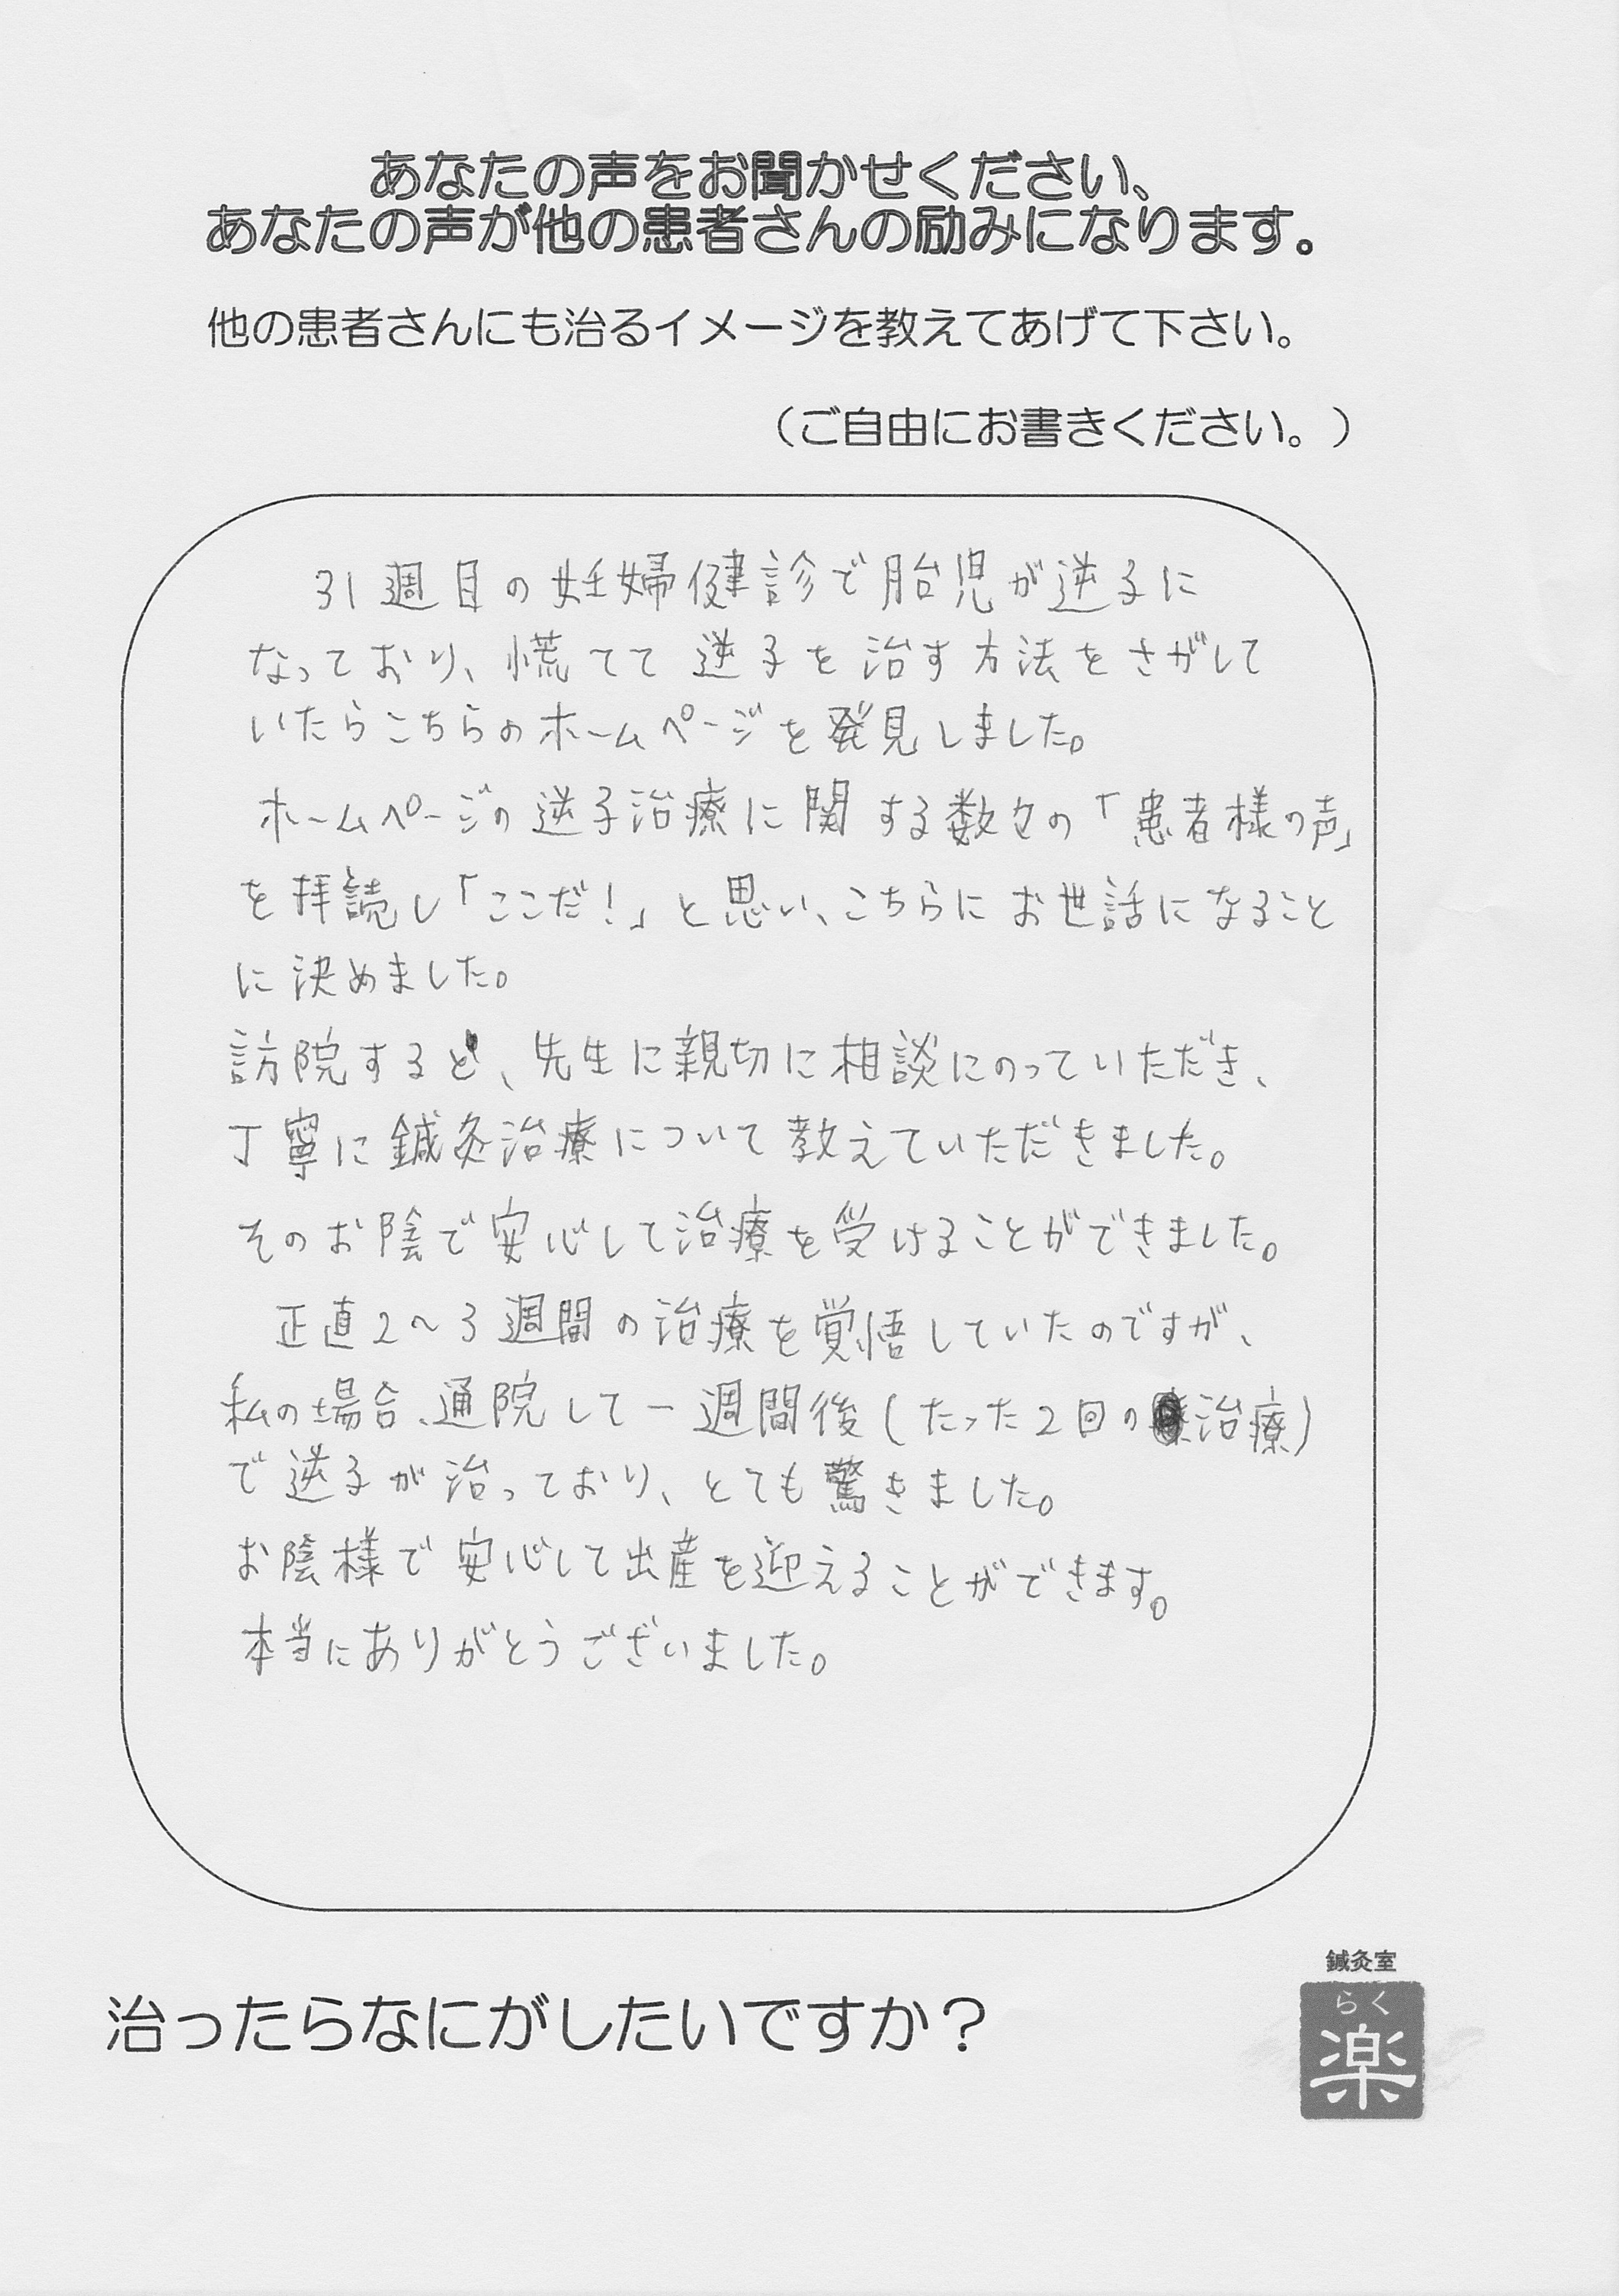 あなたの声をお聞かせください、
あなたの声が他の患者さんの励みになります。
他の患者さんにも治るイメージを教えてあげて下さい。
（ご自由にお書きください。）
31週目の妊婦健診で胎児が逆子に
なっており、慌てて逆子を治す方法をさがして
いたらこちらのホームページを発見しました。
ホームページの逆子治療に関する数々の「患者様の声」
を拝読し「ここだ！」と思い、こちらにお世話になること
に決めました。
訪院すると、先生に親切に相談にのっていただき、
丁寧に鍼灸治療について教えていただきました。
そのお陰で安心して治療を受けることができました。
正直2〜3週間の治療を覚悟していたのですが、
私の場合、通院して一週間後(たった2回の治療)
で逆子が治っており、とても驚きました。
お陰様で安心して出産を迎えることができます。
本当にありがとうございました。
治ったらなにがしたいですか？
鍼灸室
らく
楽